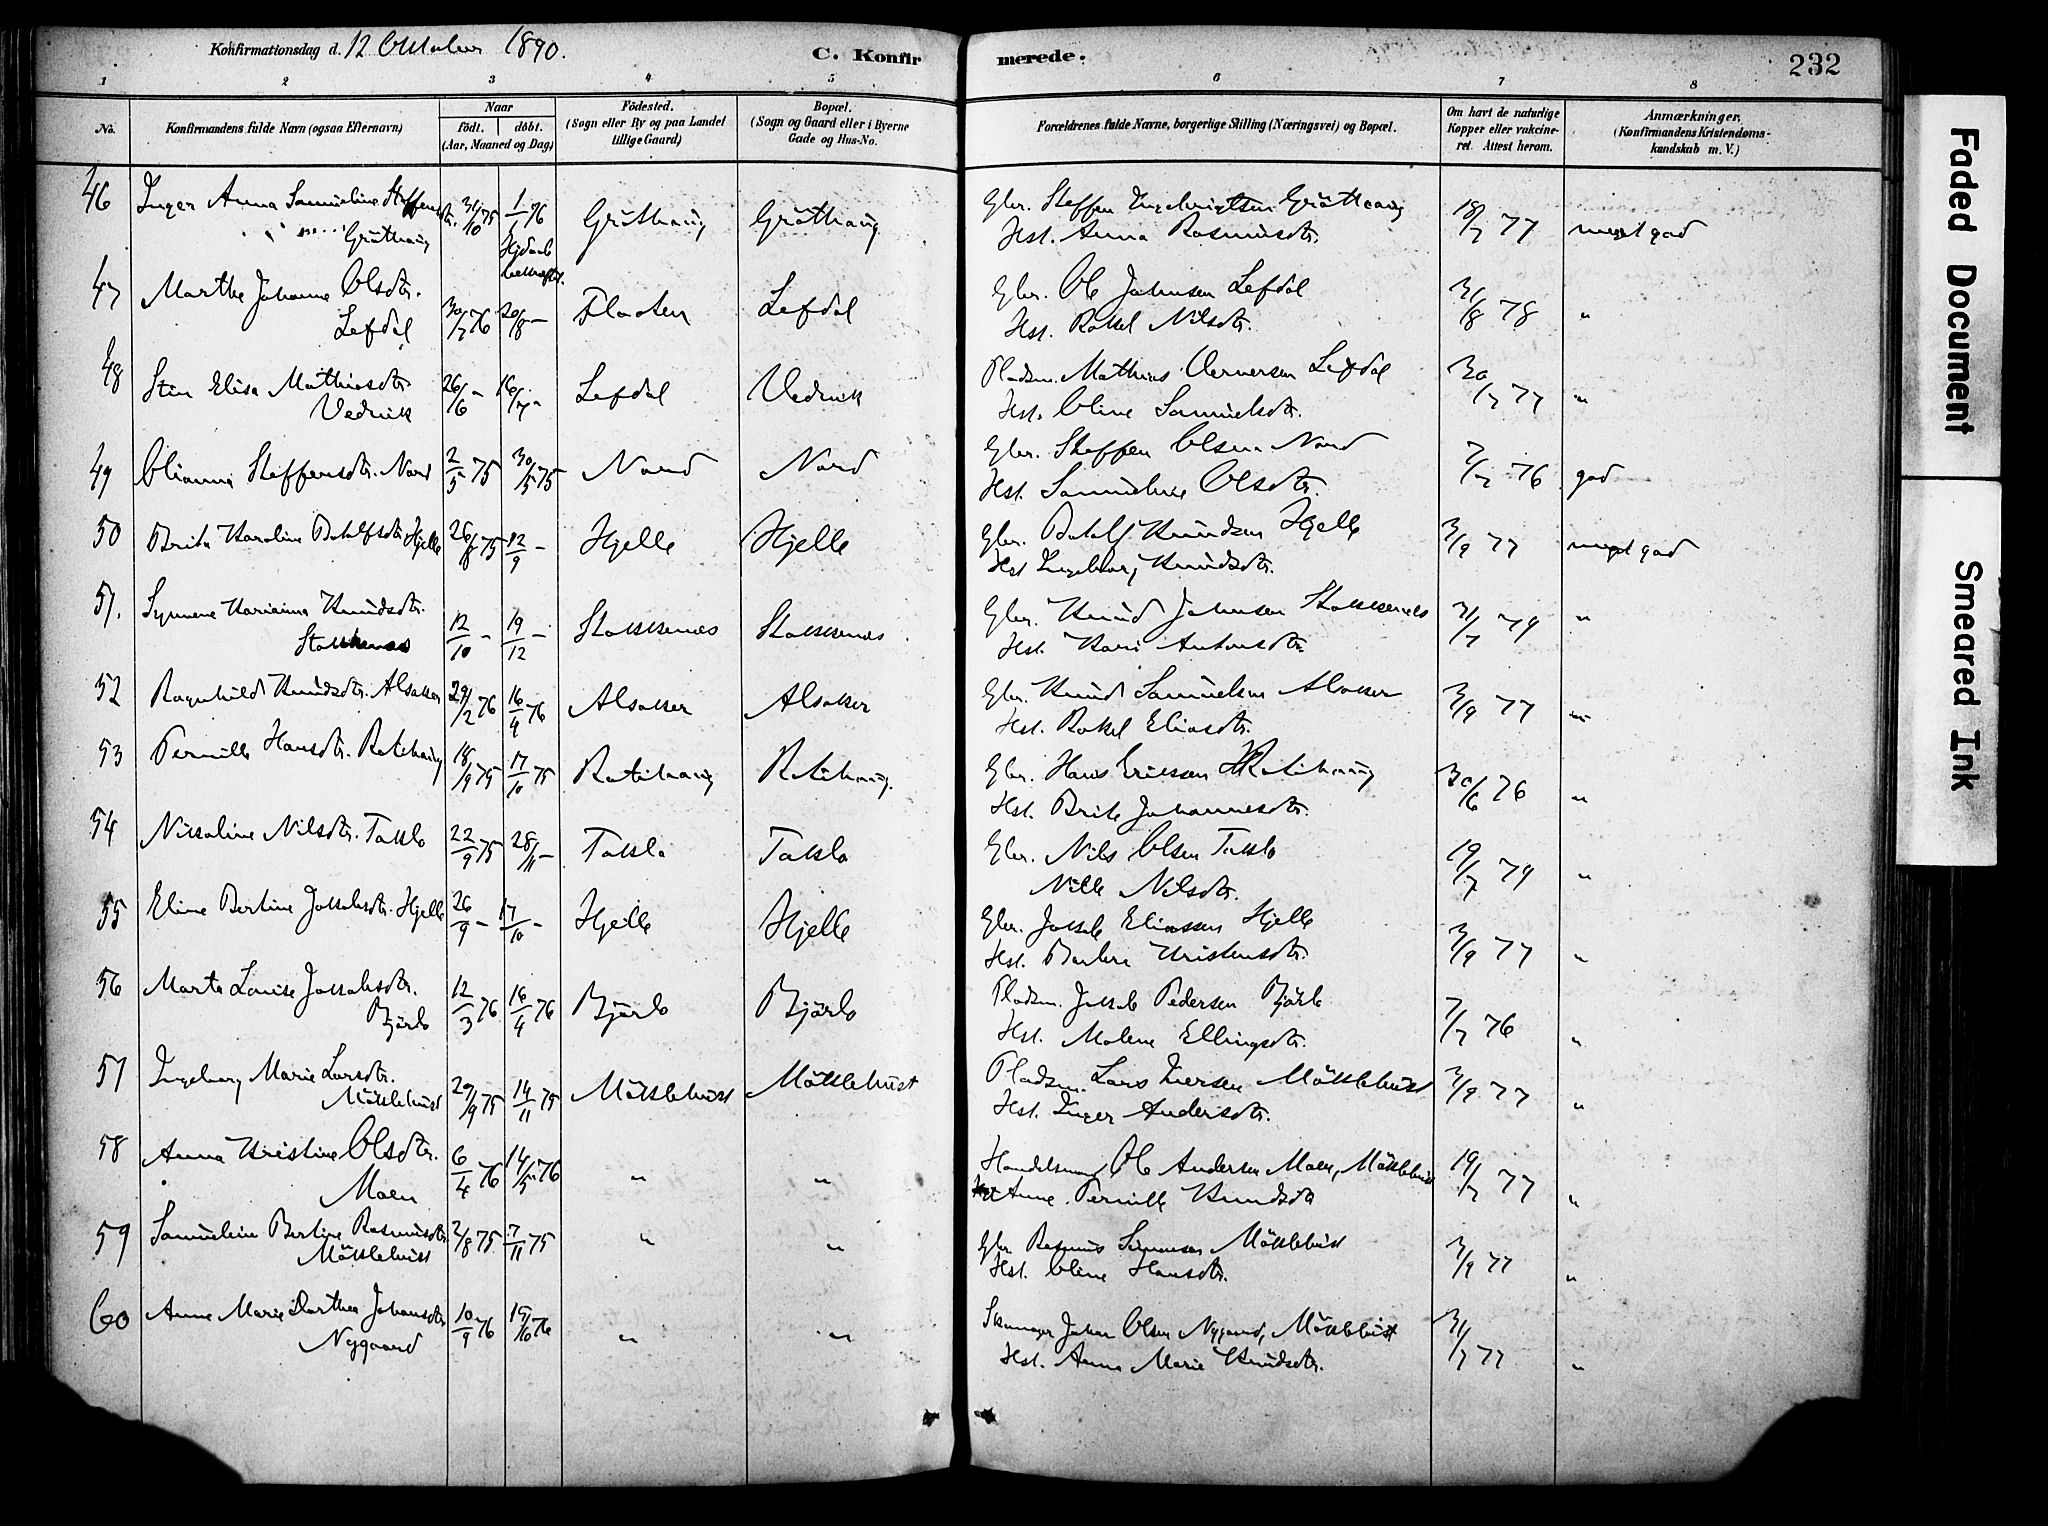 Konfirmationsdag d. 12 Oktober 1890.
C. Konfirmerede.
232
1 2 3 4 5 6 7 8
No.
Konfirmandens fulde Navn (ogsaa Efternavn)
Naar
födt. döbt.
(Aar, Maaned og Dag)
Födested.
(Sogn eller By og paa Landet
tillige Gaard)
Bopæl.
(Sogn og Gaard eller i Byerne
Gade og Hus-No.
Forældrenes fulde Navne, borgerlige Stilling (Næringsvei) og Bopæl.
Om havt de naturlige
Kopper eller vakcine-
ret. Attest herom.
Anmærkninger.
(Konfirmandens Kristendoms-
kundskab m. V.)
46 Inger Anna Samueline Steffensdtr. 31/10 75 1/1 76 Gröthaug Gröthaug Gbr. Steffen Ingebrigtsen Gröthaug 18/7 77 meget god
Gröthaug Hjdøb bekræftet. Hst. Anna Rasmusdtr.
47 Marthe Johanne Olsdtr. Gbr. Ole Johnsen Lefdal 31/8 78 "
Lefdal 30/7 76 20/8 - Flaaten Lefdal Hst. Rakel Nilsdtr.
48 Stine Elisa Mathiasdtr. 26/6 - 16/7 - Lefdal Vedvik Pladsm. Mathias Vernersen Lefdal 30/7 77 "
Vedvik Hst. Oline Samuelsdtr.
49 Olianna Steffensdtr. Nord 2/5 75 30/5 75 Nord Nord Gbr. Steffen Olsen Nord 7/7 76 god
Hst. Samueline Olsdtr.
50 Brita Karoline Botolfsdtr. Hjelle 26/8 75 12/9 - Hjelle Hjelle Gbr. Botolf Knudsen Hjelle 3/9 77 meget god
Hst Ingeborg Knudsdtr.
51. Synneve Karianna Knudsdtr. Gbr. Knud Johnsen Stokkenes 31/7 79 "
Stokkenes 12/10 - 19/12 - Stokkenæs Stokkenæs. Hst. Kari Antonsdtr.
52 Ragnhild Knudsdtr. Alsaker 29/2 76 16/4 76 Alsaker Alsaker Gbr. Knud Samuelsen Alsaker 3/9 77 "
Hst. Rakel Eliasdtr.
53 Pernille Hansdtr. Rotihaug 18/9 75 17/10 75 Rotihaug Rotihaug. Gbr. Hans Eriksen Rotihaug 30/6 76 "
Hst. Brite Johannesdtr.
54 Nikoline Nilsdtr. Taklo 22/9 75 28/11 - Taklo Taklo Gbr. Nils Olsen Taklo 19/7 79 "
Nille Nilsdtr.
55 Eline Bertine Jakobsdtr. Hjelle 26/9 - 17/10 - Hjelle Hjelle Gbr. Jakob Eliassen Hjelle 3/9 77 "
Hst. Barbra Kristensdtr.
56 Marta Louise Jakobsdtr. 12/3 76 16/4 76 Bjørlo Bjørlo Pladsm. Jakob Pedersen Bjørlo 7/7 76 "
Bjørlo Hst. Malene Ellingsdtr.
57 Ingeborg Marie Larsdtr. Pladsm. Lars Iversen Möklebust 3/9 77 "
Möklebust 29/9 75 14/11 75 Möklebust Möklebust Hst. Inger Andersdtr.
58 Anna Kristine Olsdtr. 6/4 76 14/5 76 " " Handelsmand Ole Andersen Moen, Möklebust 19/7 77 "
Moen Hst Anne Pernille Knudsdtr
59 Samueline Bertine Rasmusdtr. 2/8 75. 7/11 75 " " Gbr Rasmus Simonsen Möklebust 3/9 77 "
Möklebust Hst. Oline Hansdtr.
60 Anne Marie Dorthea Johansdtr. 10/9 76 15/10 76 " " Skomager Johan Olsen Nygaard, Möklebust 31/7 77 "
Nygaard Hst. Anna Marie Knudsdtr.
Faded Document
Smeared Ink